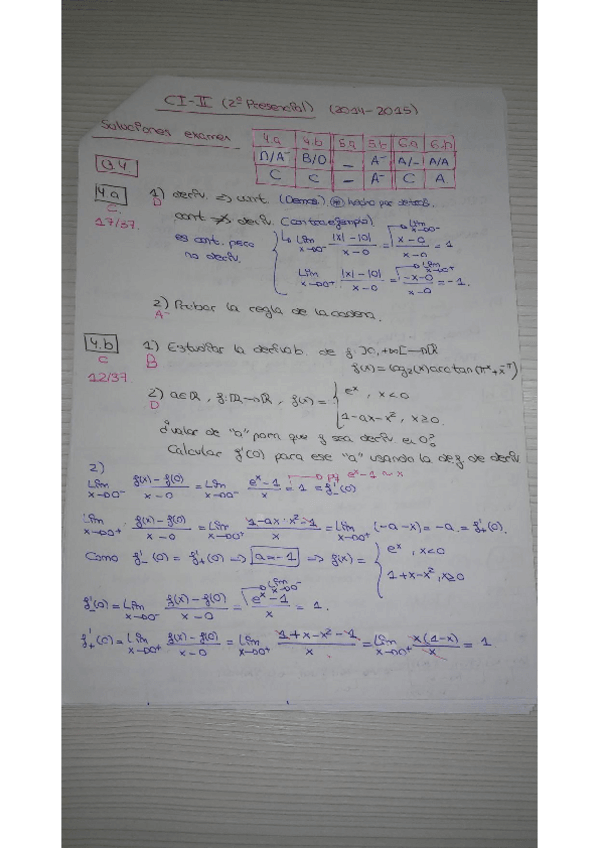 CI-II (2º Presencial) (2014-2015)
Soluciones examen
4.a 4.b 5.a 5.b 6.a 6.b
D/A⁻ B/D — A⁻ A/- A/A
C C — A⁻ C A
4.a 1) deriv. ⇒ cont. (Demos.) hecho por detrás.
C. D
17/37. cont ⇏ deriv. (contraejemplo)
es cont. pero no deriv.
Lim x→0⁻ |x|-|0| / x-0 = Lim x→0⁻ x-0 / x-0 = 1
Lim x→0⁺ |x|-|0| / x-0 = Lim x→0⁺ -x-0 / x-0 = -1.
2) Probar la regla de la cadena.
A⁻
4.b 1) Estudiar la derivab. de f
C B
12/37 f(x) = log₂(x) arctan(
2) a∈ℝ, f:ℝ→ℝ, f(x) = { eˣ, x<0
D 1-ax-x², x≥0.
¿valor de "b" para que f sea deriv en 0?
Calcular f'(0) para ese "a" usando la def. de deriv.
2) pq eˣ-1 ~ x
Lim x→0⁻ f(x)-f(0) / x-0 = Lim x→0⁻ eˣ-1 / x = 1 = f'₋(0)
Lim x→0⁺ f(x)-f(0) / x-0 = Lim x→0⁺ 1-ax-x²-1 / x = Lim x→0⁺ (-a-x) = -a = f'₊(0).
Como f'₋(0) = f'₊(0) ⇒ a=-1 ⇒ f(x) = { eˣ, x<0
1+x-x², x≥0
f'₋(0) = Lim x→0⁻ f(x)-f(0) / x-0 = Lim x→0⁻ eˣ-1 / x = 1.
f'₊(0) = Lim x→0⁺ f(x)-f(0) / x-0 = Lim x→0⁺ 1+x-x²-1 / x = Lim x→0⁺ x(1-x) / x = 1.